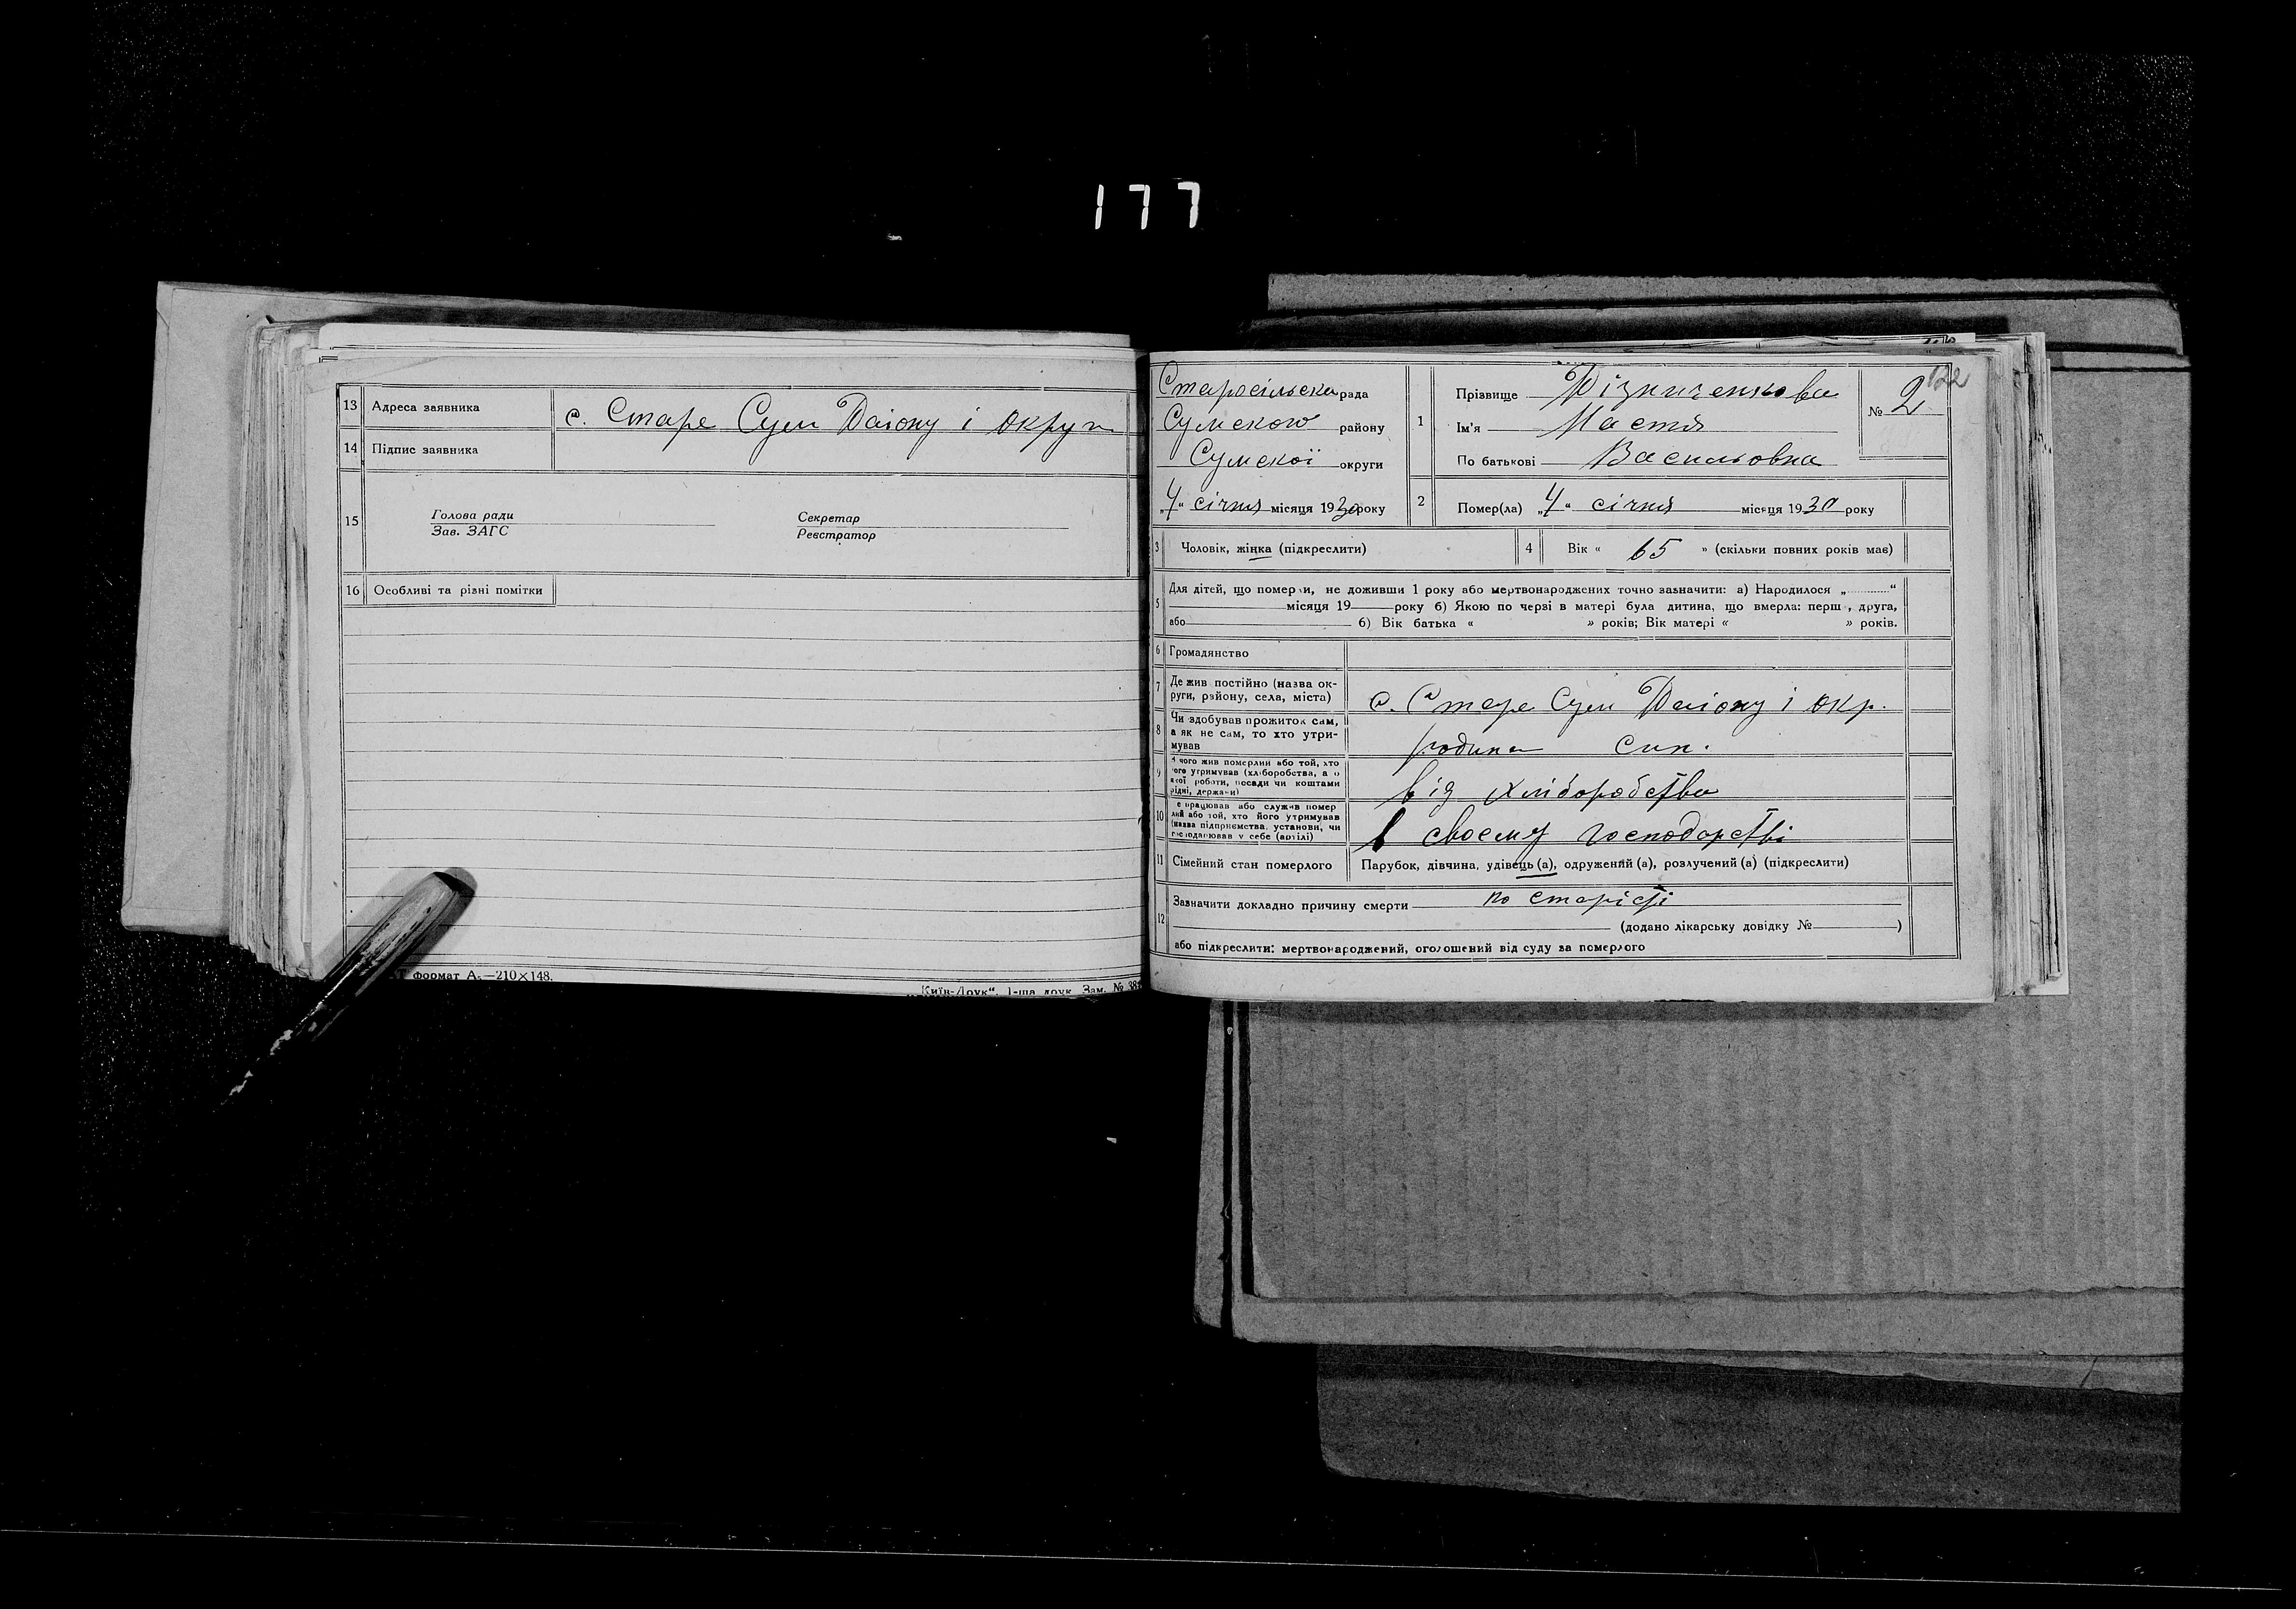 177
13 Адреса заявника с. Старе Сум Району і округ
14 Підпис заявника
15 Голова ради
Зав. ЗАГС
Секретар
Реєстратор
16 Особливі та різні помітки
формат А₅—210×148.
Київ-Друк", 1-ша друк. Зам. №
Старосільска рада
Сумского району
Сумскої округи
„4" січня місяця 1930 року
1 Прізвище Різниченкова
Ім'я Настя
По батькові Васильовна
№ 2
122
2 Помер(ла) „4" січня місяця 1930 року
3 Чоловік, жінка (підкреслити)
4 Вік « 65 » (скільки повних років має)
5 Для дітей, що померли, не доживши 1 року або мертвонароджених точно зазначити: а) Народилося „ "
місяця 19 року б) Якою по черзі в матері була дитина, що вмерла: перш , друга,
або б) Вік батька « » років; Вік матері « » років.
6 Громадянство
7 Де жив постійно (назва ок-
руги, району, села, міста) с. Старе Сум Району і окр.
8 Чи здобував прожиток сам,
а як не сам, то хто утри-
мував родина син.
9 З чого жив померлий або той, хто
його утримував (хліборобства, а о
якої роботи, посади чи коштами
рідні, держави) від хліборобства
10 е працював або служив помер
лий або той, хто його утримував
(назва підприємства, установи, чи
господарював у себе (артілі) в своєму господарстві
11 Сімейний стан померлого Парубок, дівчина, удівець (а), одружений (а), розлучений (а) (підкреслити)
12 Зазначити докладно причину смерти по старісті
(додано лікарську довідку № )
або підкреслити: мертвонароджений, оголошений від суду за померлого